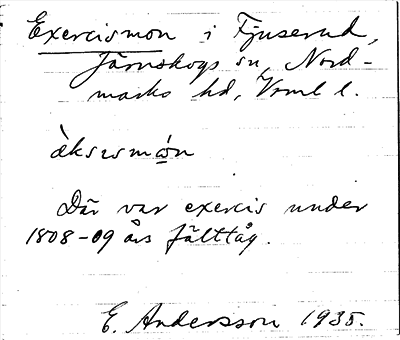 Exercismon i Fjuserud,
Järnskogs sn, Nord-
marks hd, Vrml l.
èksɩsmón
Där var exercis under
1808-09 års fälttåg.
E. Andersson 1935.